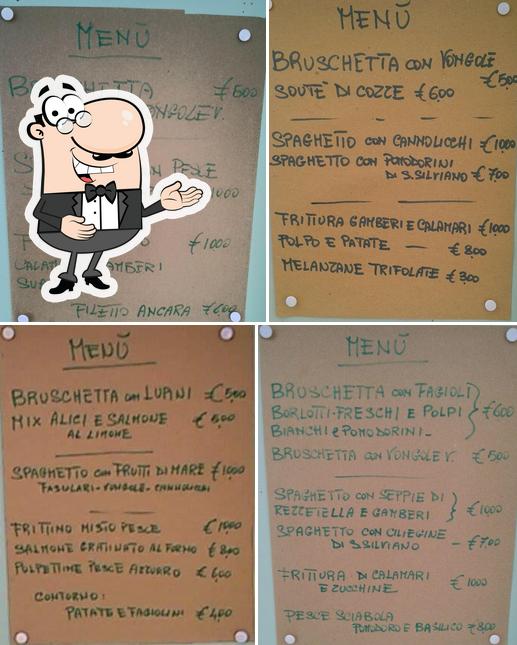 MENÙ
BRUSCHETTA €5,00
VONGOLE V.
CON PESCE
€10,00
FILETTO ANCARA €6,00
MENÙ
BRUSCHETTA CON VONGOLE €5,00
SOUTE' DI COZZE €6,00
SPAGHETTO CON CANNOLICCHI €10,00
SPAGHETTO CON POMODORINI
DI S.SILVIANO €7,00
FRITTURA GAMBERI E CALAMARI €10,00
POLPO E PATATE — €8,00
MELANZANE TRIFOLATE €3,00
MENÙ
BRUSCHETTA CON LUPINI €5,00
MIX ALICI E SALMONE €5,00
AL LIMONE
SPAGHETTO CON FRUTTI DI MARE €10,00
FASULARI-VONGOLE-CANNOLICCHI
FRITTINO MISTO PESCE €10,00
SALMONE GRATINATO AL FORNO €8,00
POLPETTINE PESCE AZZURRO €6,00
CONTORNO:
PATATE E FAGIOLINI €4,00
MENÙ
BRUSCHETTA CON FAGIOLI
BORLOTTI-FRESCHI E POLPI €6,00
BIANCHI E POMODORINI-
BRUSCHETTA CON VONGOLE V. €5,00
SPAGHETTO CON SEPPIE DI
REZZETELLA E GAMBERI €10,00
SPAGHETTO CON CILIEGINE
DI S.SILVIANO - €7,00
FRITTURA DI CALAMARI
E ZUCCHINE €10,00
PESCE SCIABOLA
POMODORO E BASILICO €8,00